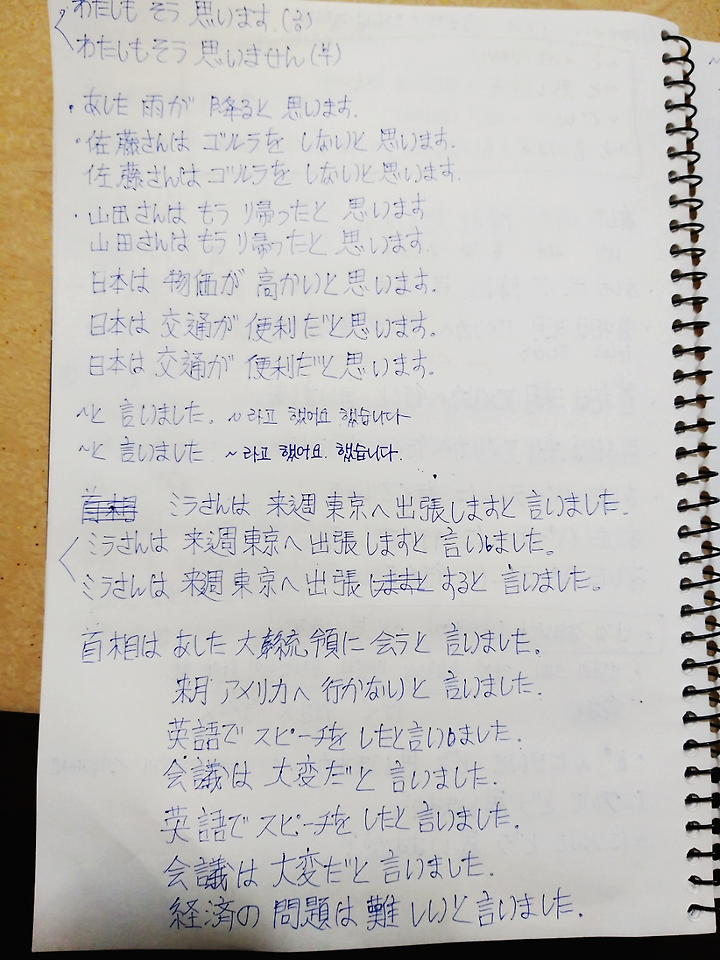 わたしも そう 思います.(긍)
わたしもそう 思いません(부)
・あした 雨が 降ると 思います.
・佐藤さんは ゴルラを しないと 思います.
佐藤さんは ゴルラを しないと思います.
・山田さんは もう り帰ったと 思います
山田さんは もう り帰ったと 思います.
日本は 物価が 高かいと思います.
日本は 交通が 便利だと思います。
日本は 交通が 便利だと思います。
~と 言いました. ~라고 했어요 했습니다
~と 言いました ~라고 했어요. 했습니다.
首相 ミラさんは 来週 東京へ 出張しますと 言いました.
ミラさんは 来週東京へ 出張しますと 言いました。
ミラさんは 来週 東京へ 出張 しますと すると 言いました。
首相は あした 大統領に 会うと 言いました。
来月 アメリカへ 行かないと 言いました.
英語で スピーチを したと言いました.
会議は 大変だと 言いました.
英語で スピーチを したと言いました.
会議は 大変だと 言いました.
経済の 問題は 難しいと言いました.